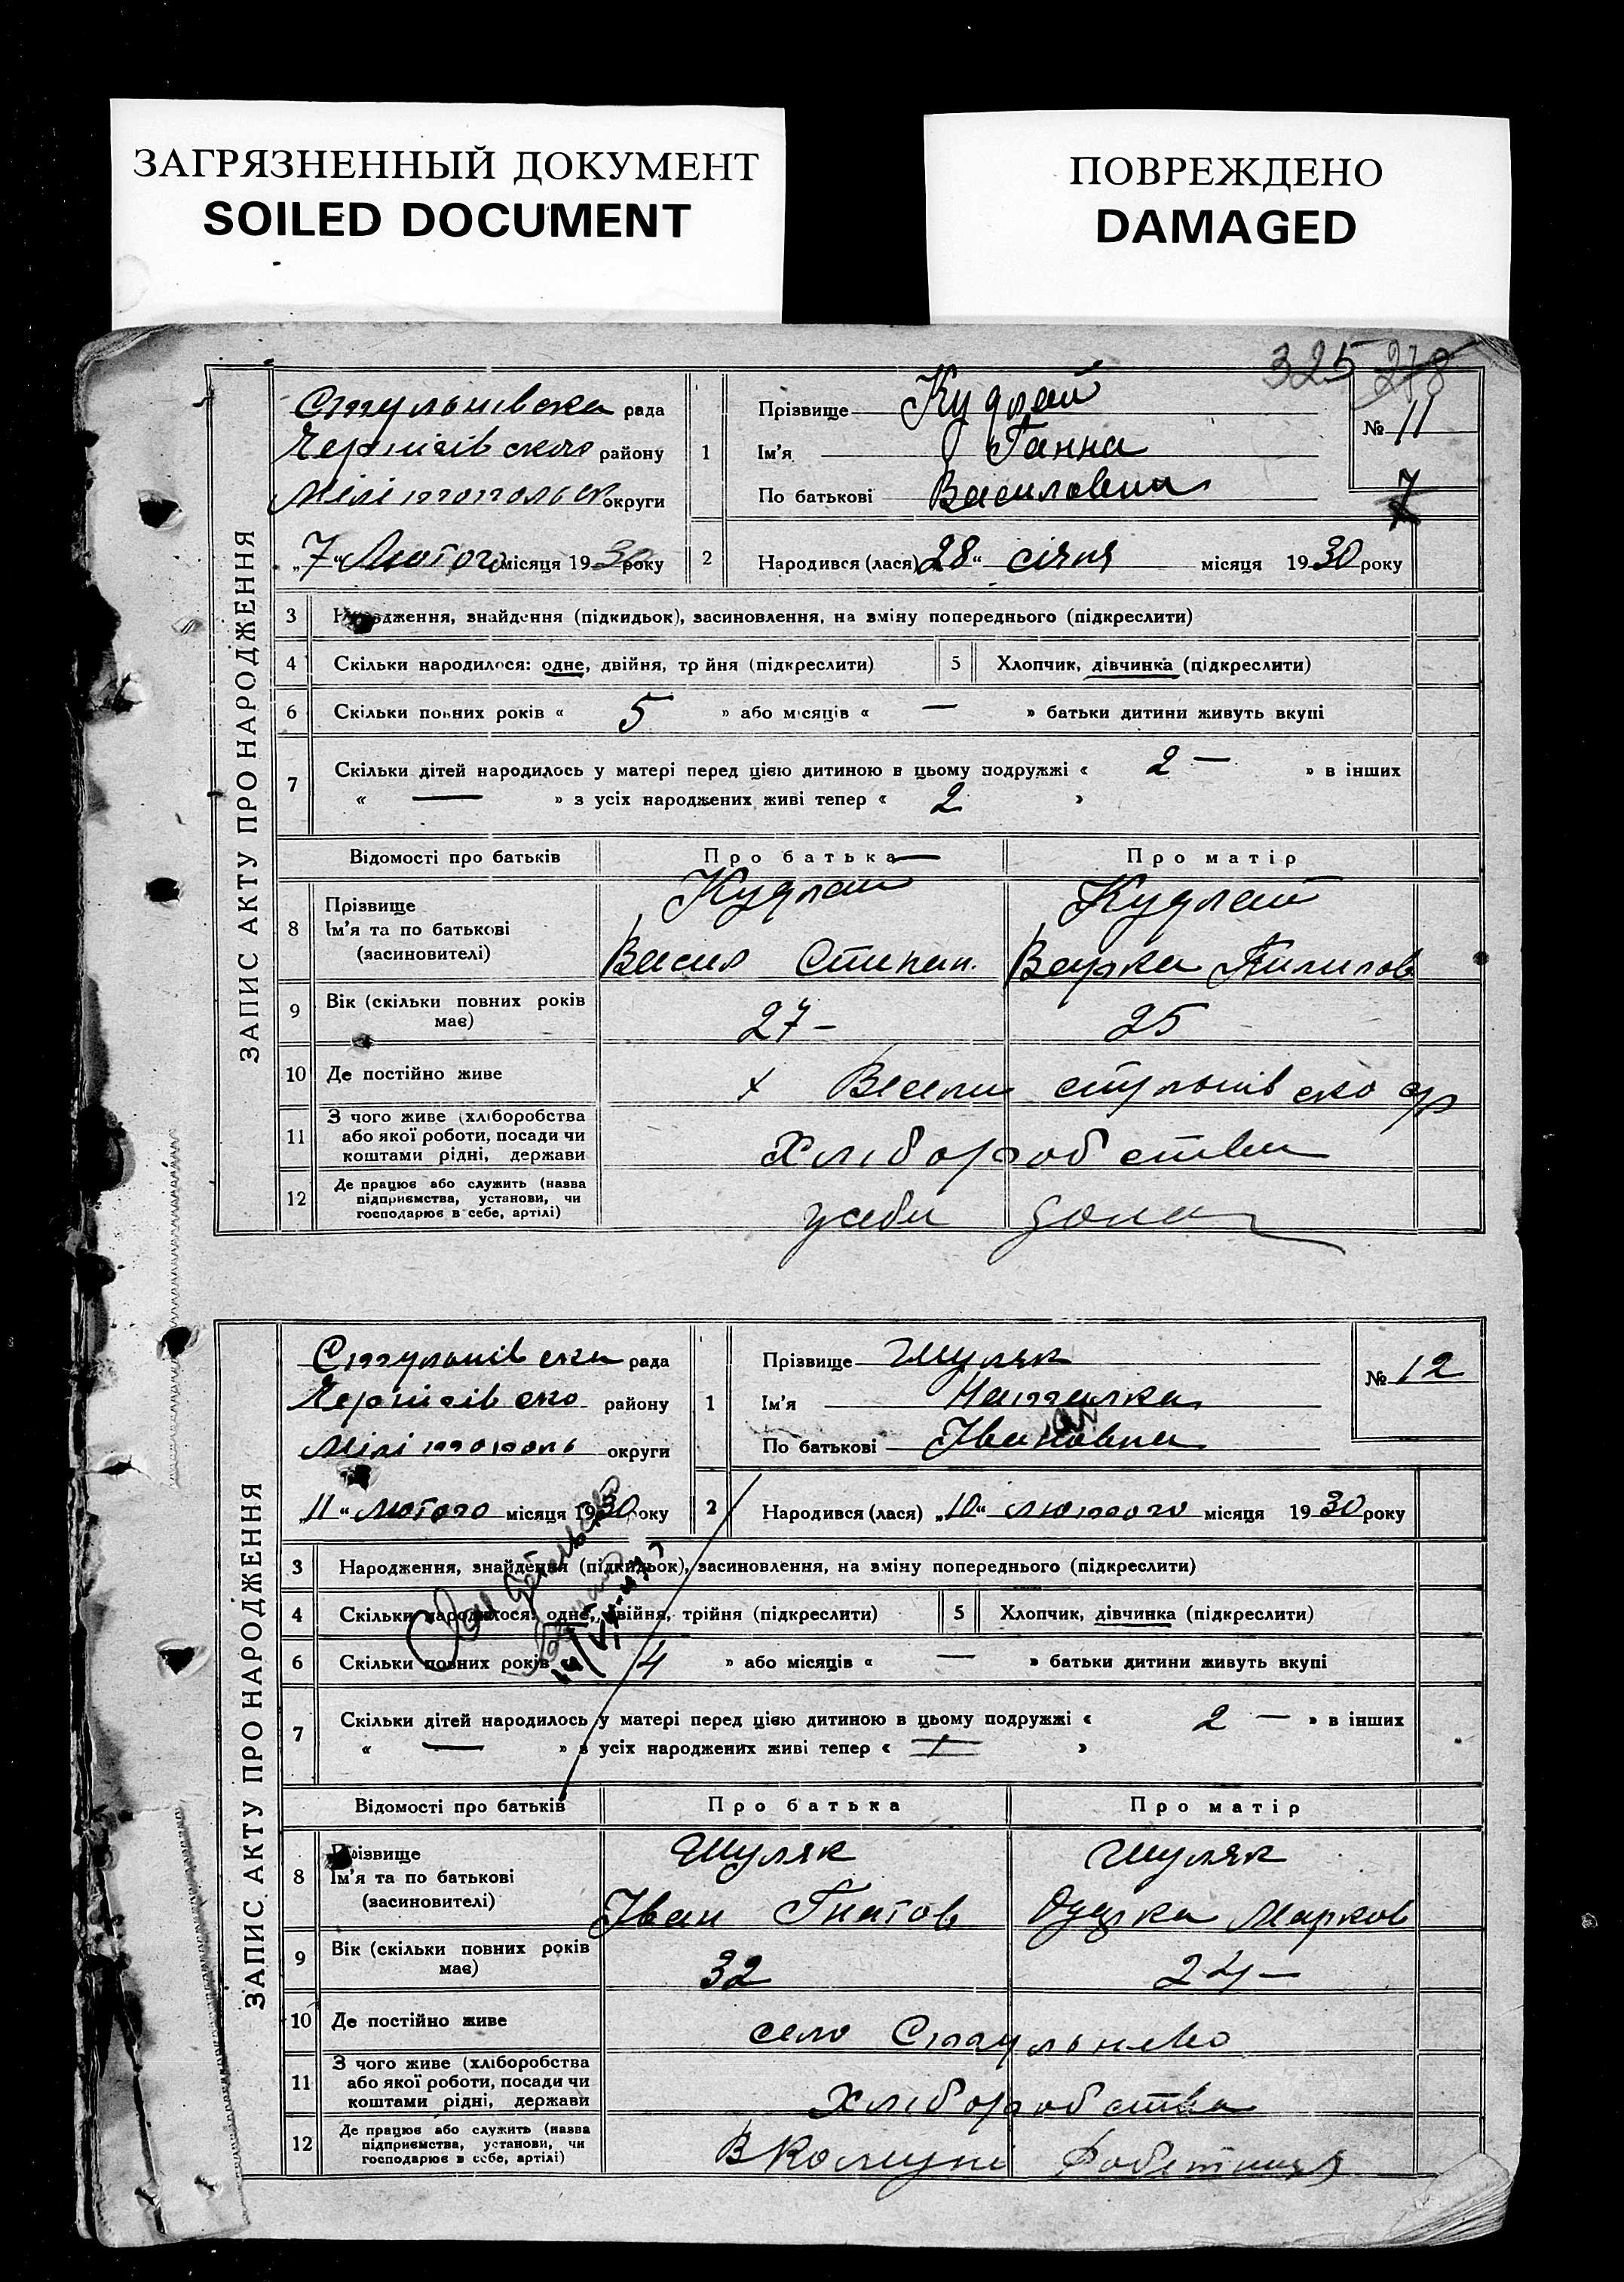 ЗАГРЯЗНЕННЫЙ ДОКУМЕНТ
SOILED DOCUMENT
ПОВРЕЖДЕНО
DAMAGED
325 278
ЗАПИС АКТУ ПРО НАРОДЖЕННЯ
Стульнівска рада
Чернігівского району
Мілітопольск округи
„7“ Лютого місяця 1930 року
1
Прізвище Кудлай
Ім'я Ганна
По батькові Василовна
№ 11
7
2 Народився (лася) „28“ січня місяця 1930 року
3 Народження, знайдення (підкидьок), засиновлення, на зміну попереднього (підкреслити)
4 Скільки народилося: одне, двійня, трійня (підкреслити)
5 Хлопчик, дівчинка (підкреслити)
6 Скільки повних років « 5 » або місяців « — » батьки дитини живуть вкупі
7 Скільки дітей народилось у матері перед цією дитиною в цьому подружжі « 2 — » в інших
« — » з усіх народжених живі тепер « 2 »
Відомості про батьків Про батька Про матір
8 Прізвище Кудлай Кудлай
Ім'я та по батькові
(засиновителі) Васил Степан. Варка Пилипов
9 Вік (скільки повних років має) 27 – 25
10 Де постійно живе х Весели стульнівско с/р
11 З чого живе (хліборобства
або якої роботи, посади чи
коштами рідні, держави Хліборобства
12 Де працює або служить (назва
підприємства, установи, чи
господарює в себе, артілі) усеби дома
ЗАПИС АКТУ ПРО НАРОДЖЕННЯ
Стульнівска рада
Чернігівско району
Мілітополь округи
„11“ лютого місяця 1930 року
1
Прізвище Шуляк
Ім'я Наталка
По батькові Івановна
№ 12
2 Народився (лася) „10“ лютого місяця 1930 року
3 Народження, знайдення (підкидьок), засиновлення, на зміну попереднього (підкреслити)
4 Скільки народилося: одне, двійня, трійня (підкреслити)
5 Хлопчик, дівчинка (підкреслити)
6 Скільки повних років « 4 » або місяців « — » батьки дитини живуть вкупі
7 Скільки дітей народилось у матері перед цією дитиною в цьому подружжі « 2 — » в інших
« — » з усіх народжених живі тепер « 1 »
Відомості про батьків Про батька Про матір
8 Прізвище Шуляк Шуляк
Ім'я та по батькові
(засиновителі) Іван Гнатов Одарка Марков
9 Вік (скільки повних років має) 32 24 –
10 Де постійно живе село Стульнево
11 З чого живе (хліборобства
або якої роботи, посади чи
коштами рідні, держави Хліборобства
12 Де працює або служить (назва
підприємства, установи, чи
господарює в себе, артілі) В Комуні